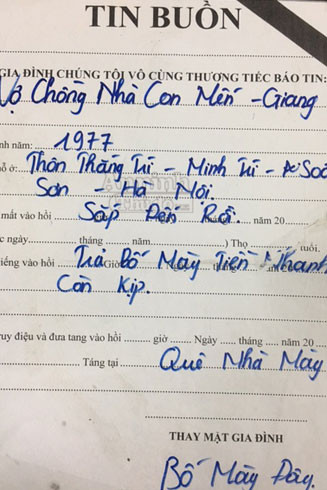 TIN BUỒN
GIA ĐÌNH CHÚNG TÔI VÔ CÙNG THƯƠNG TIẾC BÁO TIN:
Vợ Chồng Nhà Con Mến - Giang
nh năm: 1977
ỗ ở: Thôn Thắng Trí - Minh Trí - Soc
Sơn - Hà Nội
mất vào hồi Sắp Đến Rồi. tháng năm 20
c ngày tháng năm ) Thọ tuổi.
iếng vào hồi giờ Trả Bố Mày Tiền Nhanh
Còn Kịp.
ruy điệu và đưa tang vào hồi giờ Ngày tháng năm 20
Táng tại Quê Nhà Mày
THAY MẶT GIA ĐÌNH
Bố Mày Đây.